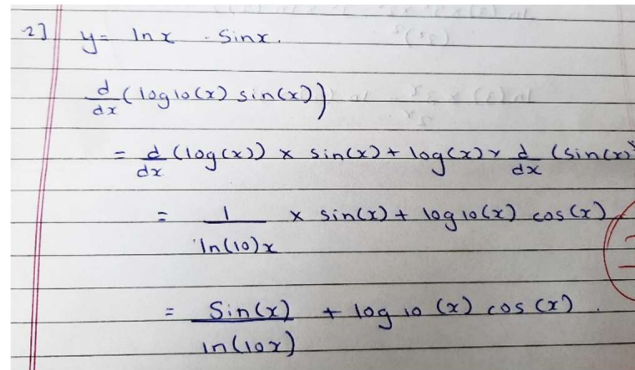 2] y = ln x · sin x.
d/dx (log10(x) sin(x))
= d/dx (log(x)) × sin(x) + log(x) × d/dx (sin(x)
= 1/ln(10)x × sin(x) + log10(x) cos(x)
= Sin(x)/ln(10x) + log10(x) cos(x).